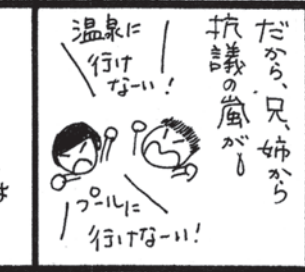 だから、兄、姉から
抗議の嵐が!
温泉に
行け
なーい!
プールに
行けなーい!